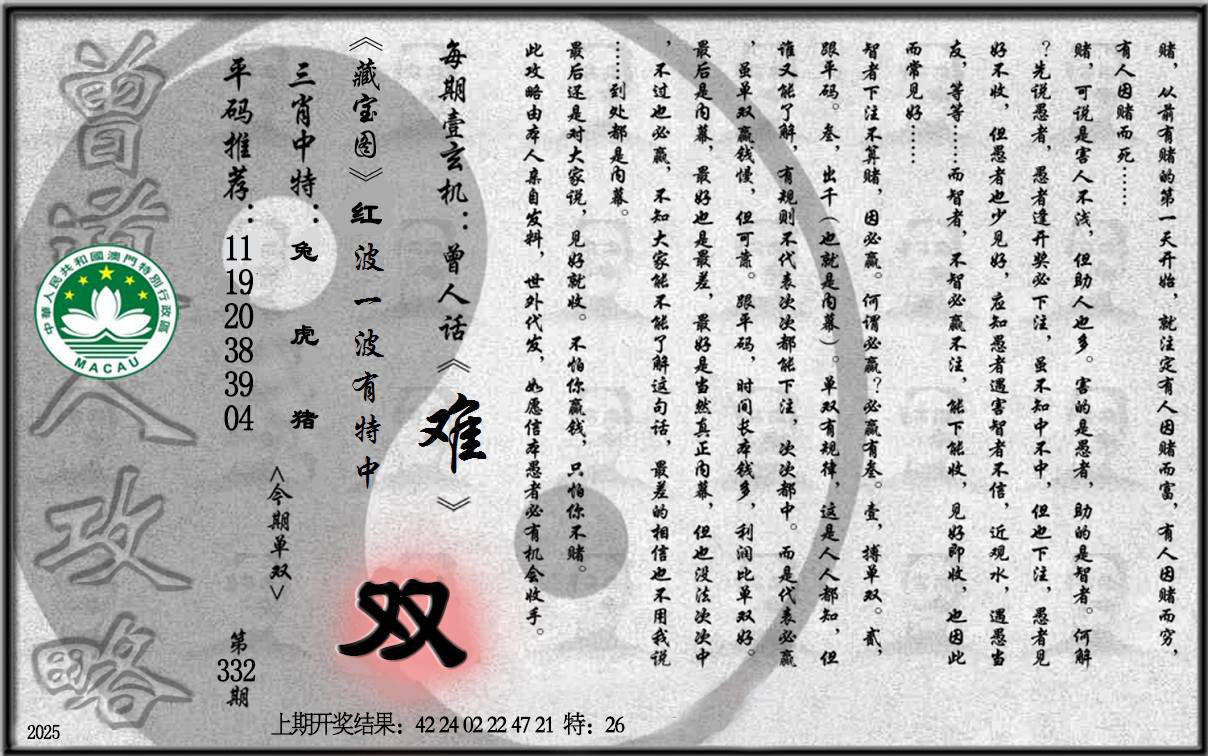 赌，从前有赌的第一天开始，就注定有人因赌而富，有人因赌而穷，
有人因赌而死……
赌，可说是害人不浅，但助人也多。害的是愚者，助的是智者。何解
？先说愚者，愚者逢开奖必下注，虽不知中不中，但也下注，愚者见
好不收，但愚者也少见好，应知愚者遇害智者不信，近观水，遇愚当
友，等等……而智者，不智必赢不注，能下能收，见好即收，也因此
而常见好……
智者下注不算赌，因必赢。何谓必赢？必赢有叁。壹，搏单双。贰，
跟平码。叁，出千（也就是内幕）。单双有规律，这是人人都知，但
谁又能了解，有规则不代表次次都能下注，次次都中。而是代表必赢
，虽单双赢钱慢，但可靠。跟平码，时间长本钱多，利润比单双好。
最后是内幕，最好也是最差，最好是当然真正内幕，但也没法次次中
，不过也必赢，不知大家能不能了解这句话，最差的相信也不用我说
……到处都是内幕。
最后还是对大家说，见好就收。不怕你赢钱，只怕你不赌。
此攻略由本人亲自发料，世外代发，如愿信本愚者必有机会收手。
每期壹玄机：曾人话《难》
《藏宝图》红波一波有特中
双
三肖中特：兔 虎 猪
<今期单双>
平码推荐：11 19 20 38 39 04
第332期
曾道人攻略
中華人民共和國澳門特別行政區
MACAU
上期开奖结果：42 24 02 22 47 21 特：26
2025